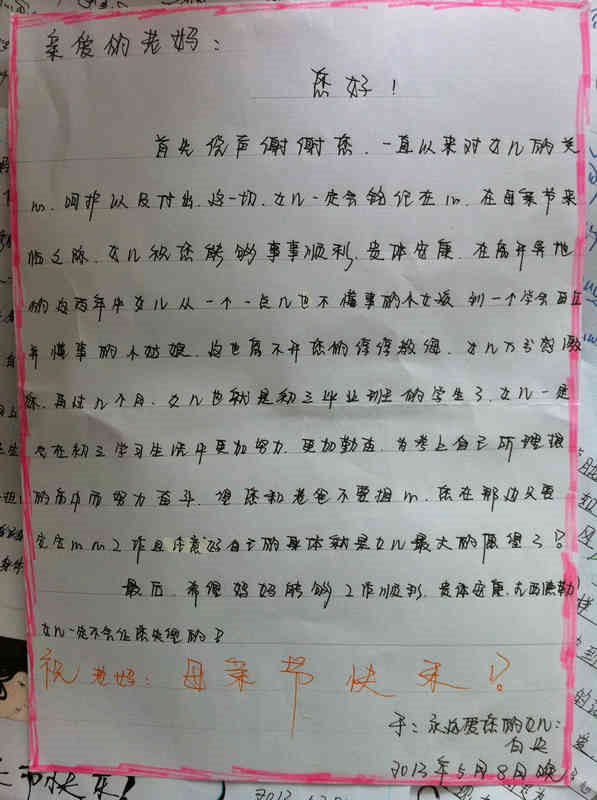 亲爱的老妈：
您好！
首先侥声谢谢您、一直以来对女儿的关
心、呵护以及付出、这一切、女儿一定会铭记在心、在母亲节来
临之际、女儿祝您能够事事顺利、贵体安康、在离开异地
的这两年中女儿从一个一点儿也不懂事的小女孩到一个学会自立
并懂事的小姑娘、这也离不开您的谆谆教诲、女儿万分感激
您、再过几个月、女儿也就是初三毕业班的学生了、女儿一定
会在初三学习生活中更加努力、更加勤奋、为考上自己所理想
的高中而努力奋斗、望您和老爸不要担心、您在那边只要
安安心心工作且注意好自己的身体就是女儿最大的愿望了！
最后、希望妈妈能够工作顺利、贵体安康、
女儿一定不会让您失望的！
祝老妈：母亲节快乐！
于：永远爱您的女儿：
2013年5月8日晚
节快乐！